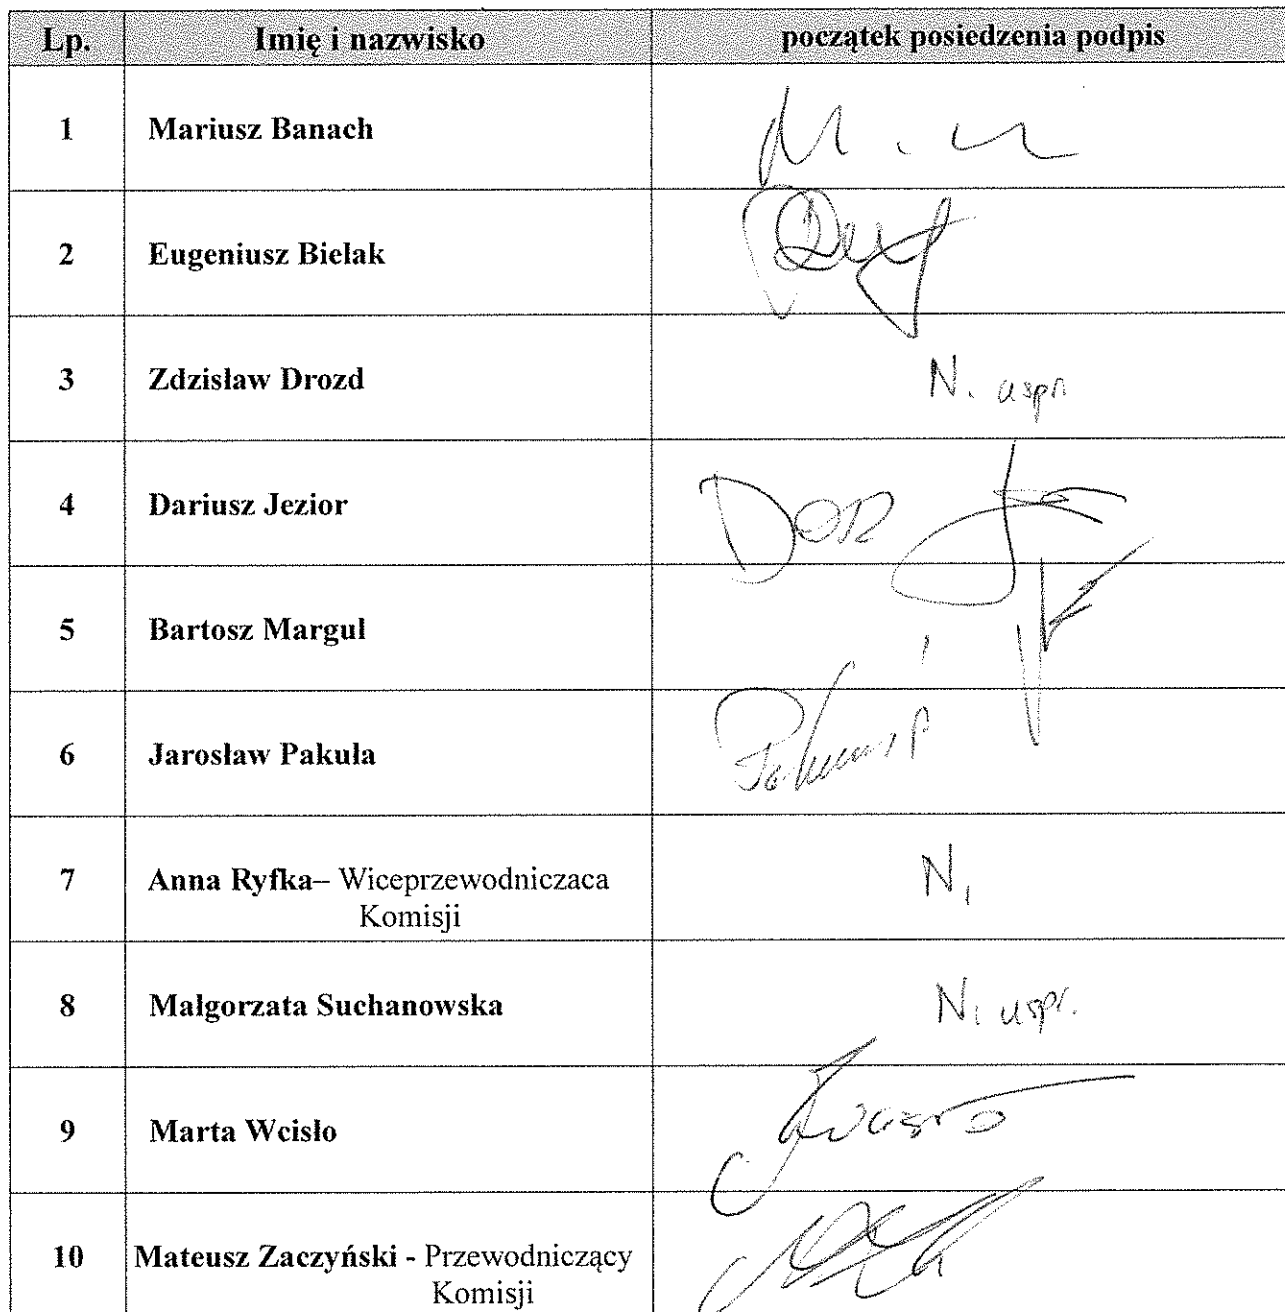 Lp. Imię i nazwisko początek posiedzenia podpis
1 Mariusz Banach
2 Eugeniusz Bielak
3 Zdzisław Drozd N. uspr.
4 Dariusz Jezior
5 Bartosz Margul
6 Jarosław Pakuła
7 Anna Ryfka– Wiceprzewodniczaca N,
Komisji
8 Małgorzata Suchanowska N. uspr.
9 Marta Wcisło
10 Mateusz Zaczyński - Przewodniczący
Komisji